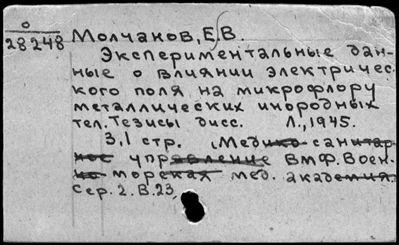 0
28248 Молчанов, Е.В.
Экспериментальные дан-
ные о влиянии электричес-
кого поля на микрофлору
металлических инородных
тел. Тезисы дисс. Л., 1945.
3,1 стр. (Медико-санитар-
ное управление ВМФ. Воен-
но-морская мед. академия.
Сер. 2. В. 23